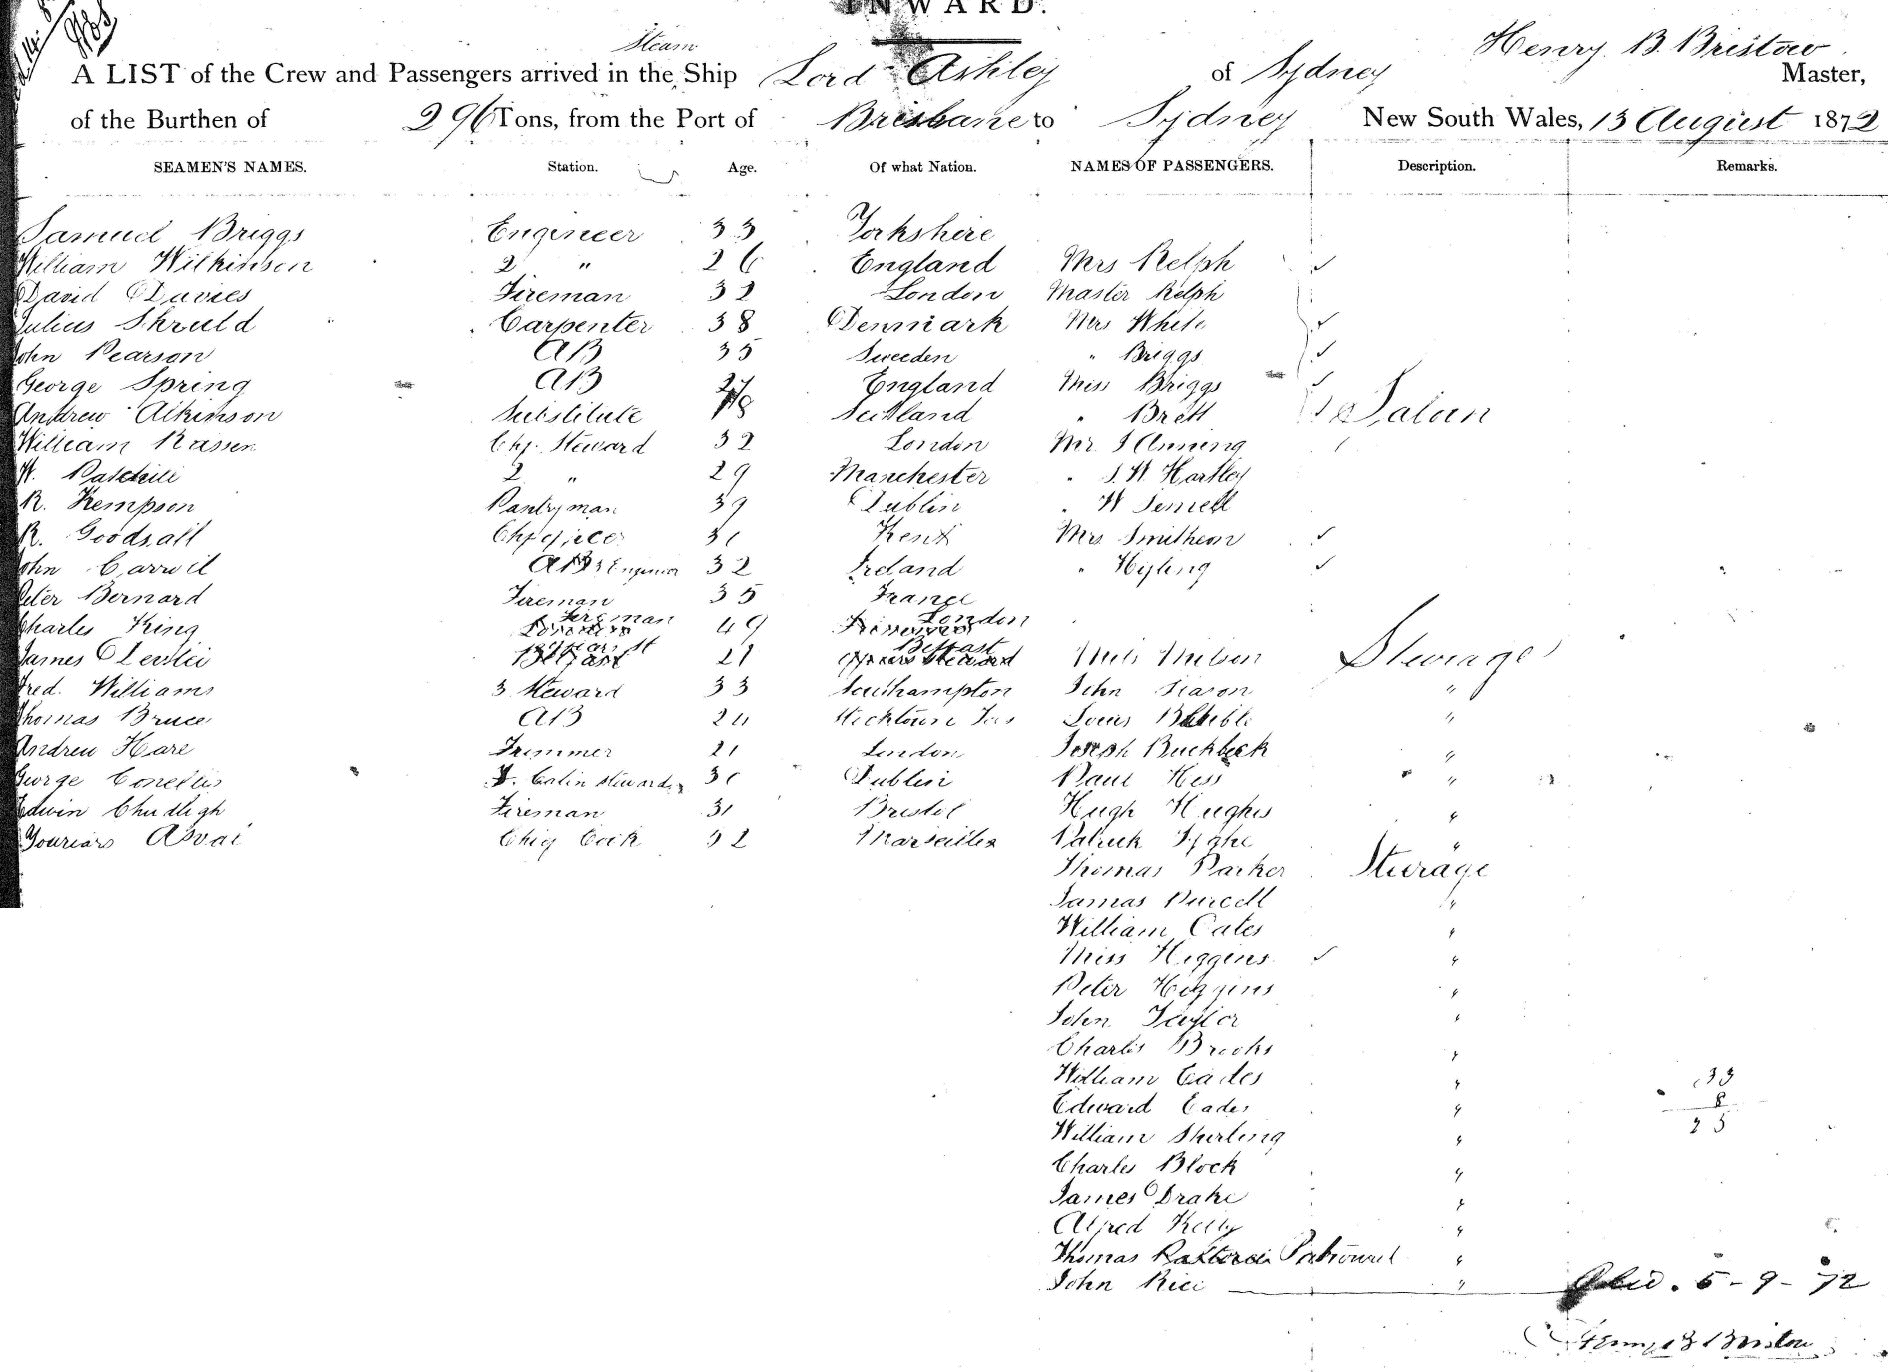 INWARD.
Steam
Henry B. Bristow
A LIST of the Crew and Passengers arrived in the Ship Lord Ashley of Sydney Master,
of the Burthen of 296 Tons, from the Port of Brisbane to Sydney New South Wales, 13 August 1872
SEAMEN'S NAMES. Station. Age. Of what Nation. NAMES OF PASSENGERS. Description. Remarks.
Samuel Briggs Engineer 33 Yorkshire
William Wilkinson 2 " 26 England Mrs Relph ✓
David Davies Fireman 32 London Master Relph
Julius Skruld Carpenter 38 Denmark Mrs White ✓
John Pearson AB 35 Sweeden " Briggs ✓
George Spring AB 27 England Miss Briggs ✓
Andrew Atkinson Substitute 18 Scotland " Brett Saloon
William Chf. Steward 32 London Mr. J Anning
W. 2 " 29 Manchester " J. W. Hartley
R. Kempson Pantryman 39 Dublin " W
R. Goodsall 31 Kent Mrs. ✓
John Carroll AB 3 Engineer 32 Ireland " ✓
Peter Bernard Fireman 35 France
Charles King Fireman 49 London
James 21 Belfast Steerage
Fred. Williams 3 Steward 33 Southampton John "
Thomas Bruce AB 24 Louis "
Andrew Hare Trimmer 21 London Joseph "
George Cabin Steward 30 Dublin Paul Hess "
Edwin Chudligh Fireman 31 Bristol Hugh Hughes "
Chief Cook 32 Marseilles Patrick Tighe "
Thomas Parker Steerage
James Purcell "
William Cates "
Miss Higgins ✓ "
Peter Higgins "
John Taylor "
Charles Brooks "
William Eades " 33
Edward Eades " 8
William Sherling " 25
Charles Block "
James Drake "
Alfred Kelly "
Thomas "
John Rice " 5-9-72
Henry B Bristow